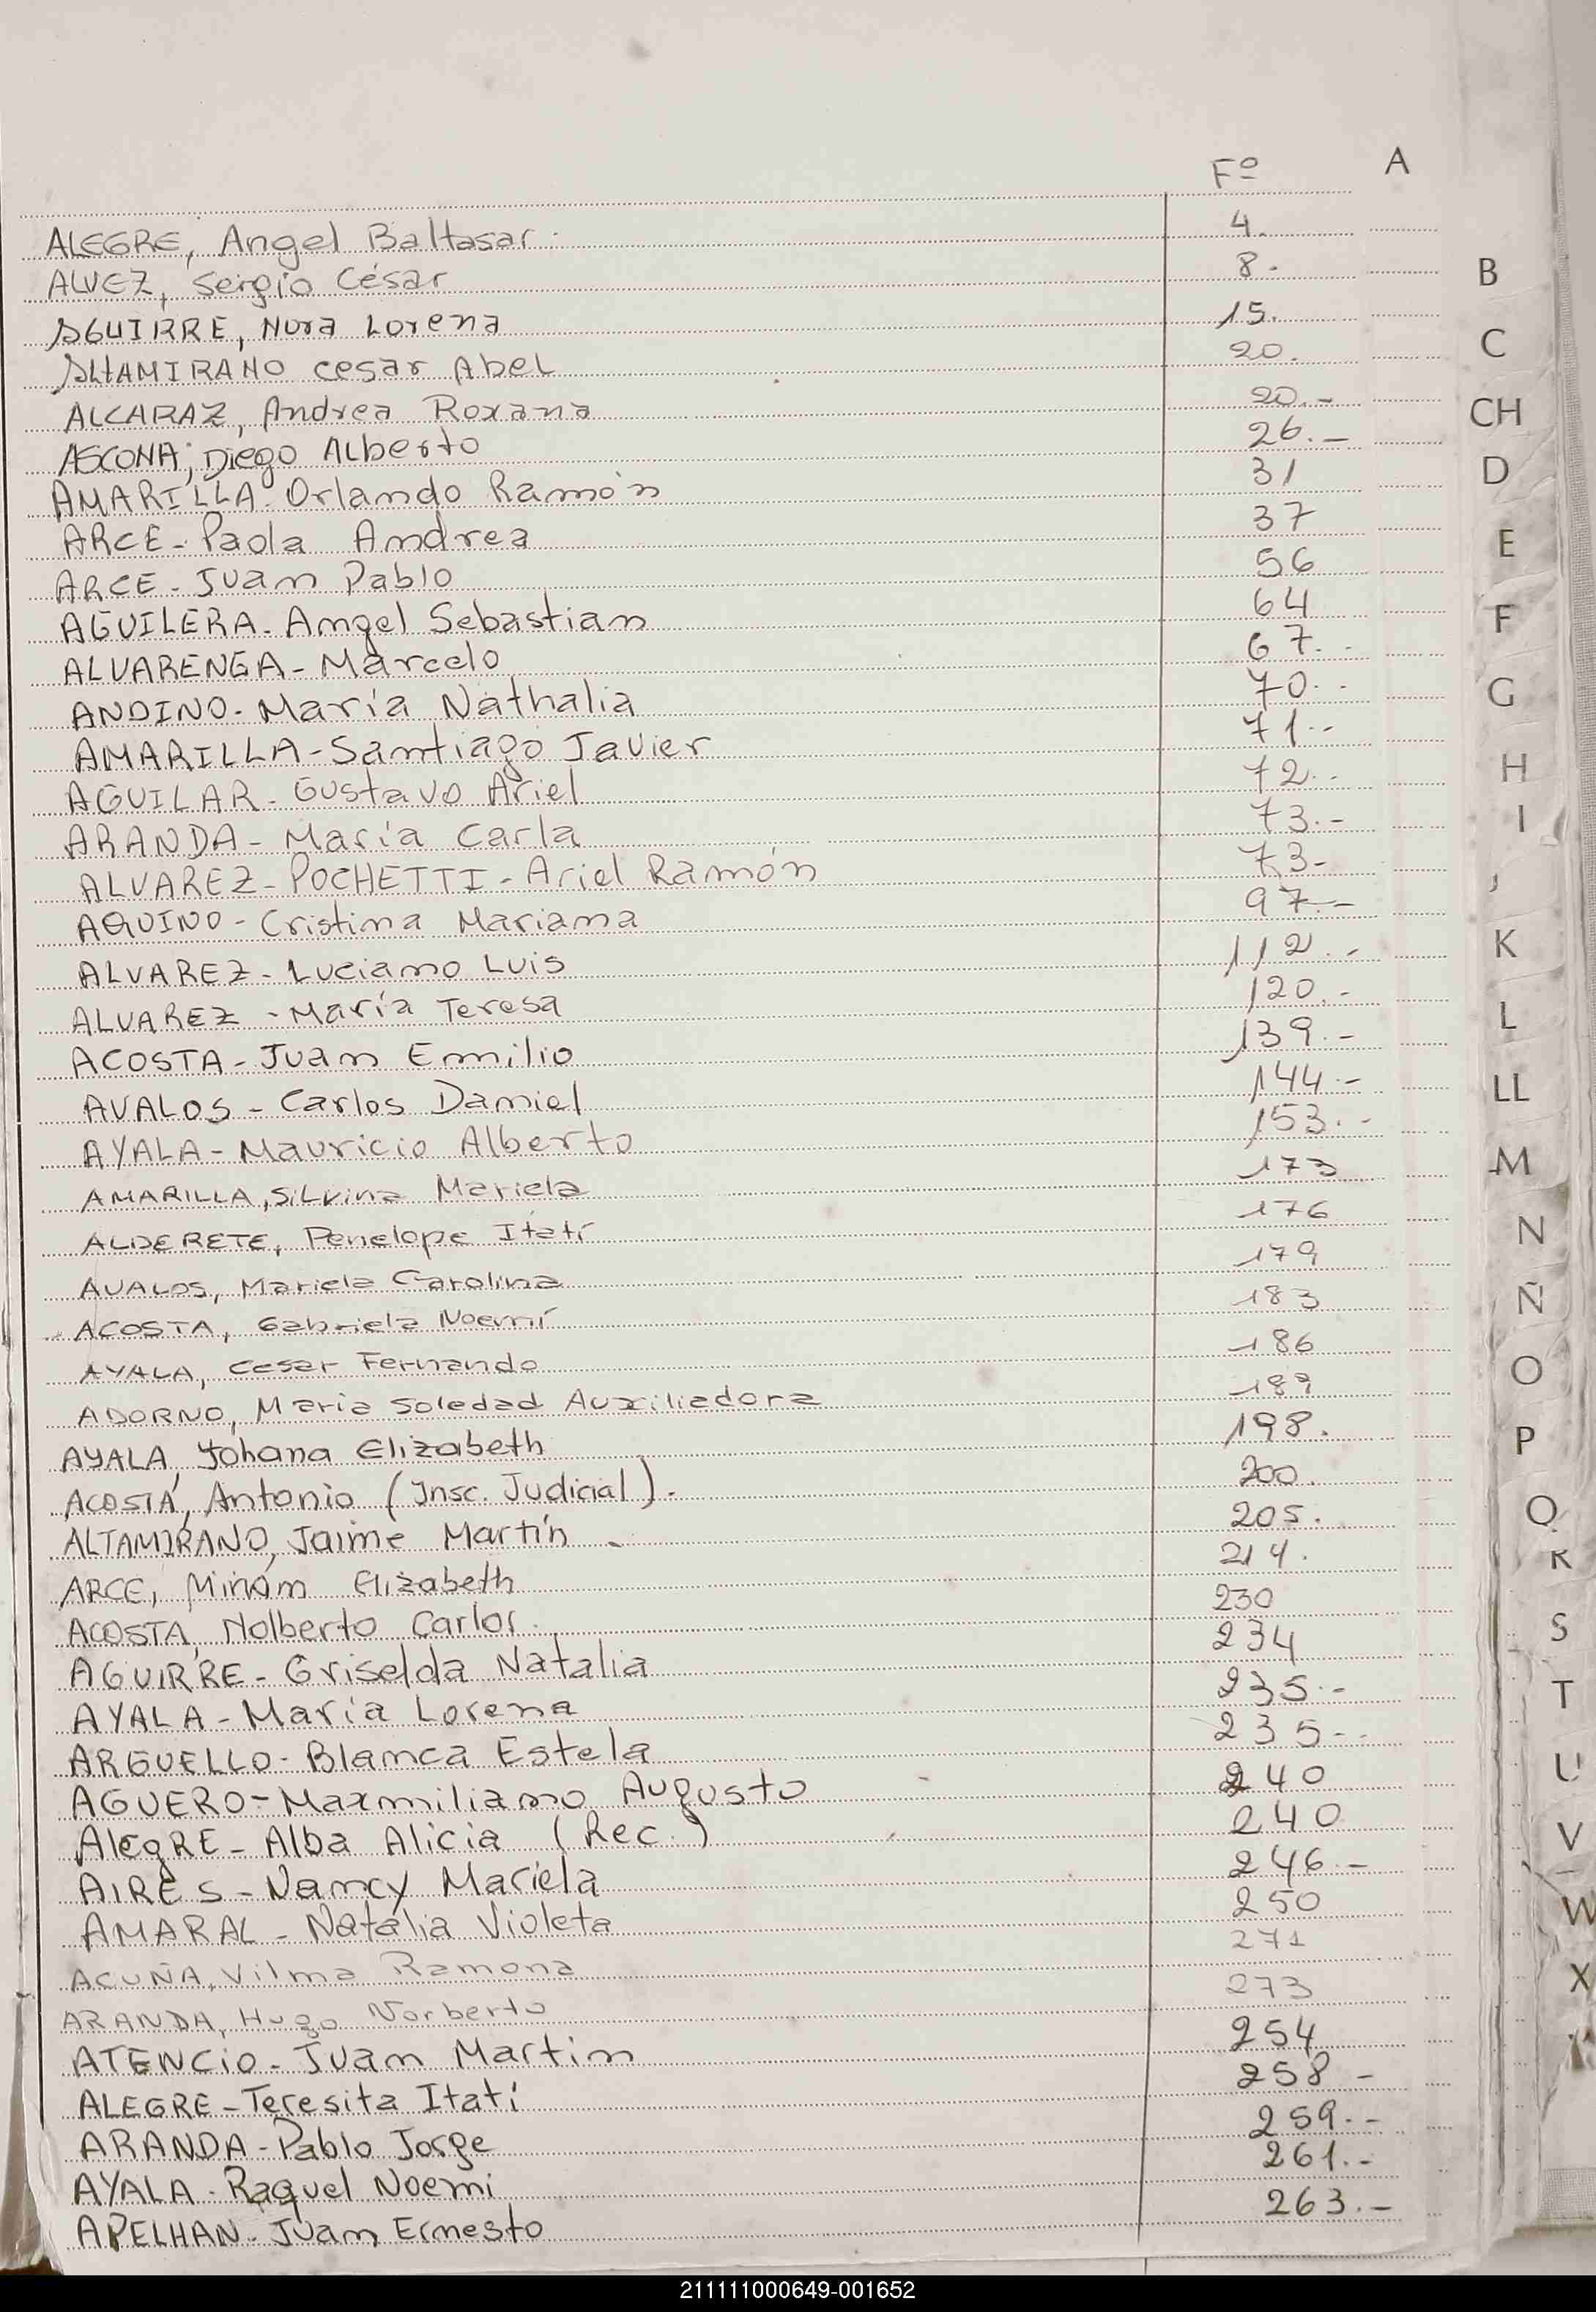 Fº A
ALEGRE, Angel Baltasar. 4.
ALVEZ, Sergio César 8.
AGUIRRE, Nora Lorena 15.
ALTAMIRANO Cesar Abel 20.
ALCARAZ, Andrea Roxana 20.-
ASCONA, Diego Alberto 26.-
AMARILLA. Orlando Ramón 31
ARCE - Paola Andrea 37
ARCE - Juan Pablo 56
AGUILERA. Angel Sebastian 64
ALVARENGA - Marcelo 67.-
ANDINO. María Nathalia 70.-
AMARILLA - Santiago Javier 71.-
AGUILAR - Gustavo Ariel 72.-
ARANDA - María Carla 73.-
ALVAREZ - POCHETTI - Ariel Ramón 73-
AQUINO - Cristina Mariana 97.-
ALVAREZ - Luciano Luis 112.-
ALVAREZ - María Teresa 120.-
ACOSTA - Juan Emilio 139.-
AVALOS - Carlos Daniel 144.-
AYALA - Mauricio Alberto 153.-
AMARILLA, Silvina Mariela 173
ALDERETE, Penelope Itatí 176
AVALOS, Mariela Carolina 179
ACOSTA, Gabriela Noemí 183
AYALA, Cesar Fernando 186
ADORNO, Maria Soledad Auxiliadora 189
AYALA, Johana Elizabeth 198.
ACOSTA, Antonio (Insc. Judicial). 200.
ALTAMIRANO, Jaime Martín 205.
ARCE, Miriam Elizabeth 214.
ACOSTA, Nolberto Carlos. 230
AGUIRRE - Griselda Natalia 234
AYALA - María Lorena 235.-
ARGUELLO - Blanca Estela 235-
AGUERO - Maxmiliano Augusto 240
AlegRE - Alba Alicia (Rec.) 240
AIRES - Nancy Mariela 246.-
AMARAL - Natalia Violeta 250
ACUÑA, Vilma Ramona 271
ARANDA, Hugo Norberto 273
ATENCIO - Juan Martin 254
ALEGRE - Teresita Itatí 258 -
ARANDA - Pablo Jorge 259.-
AYALA - Raquel Noemi 261.-
APELHAN - Juan Ernesto 263.-
B
C
CH
D
E
F
G
H
I
J
K
L
LL
M
N
Ñ
O
P
Q
R
S
T
U
V
W
X
211111000649-001652